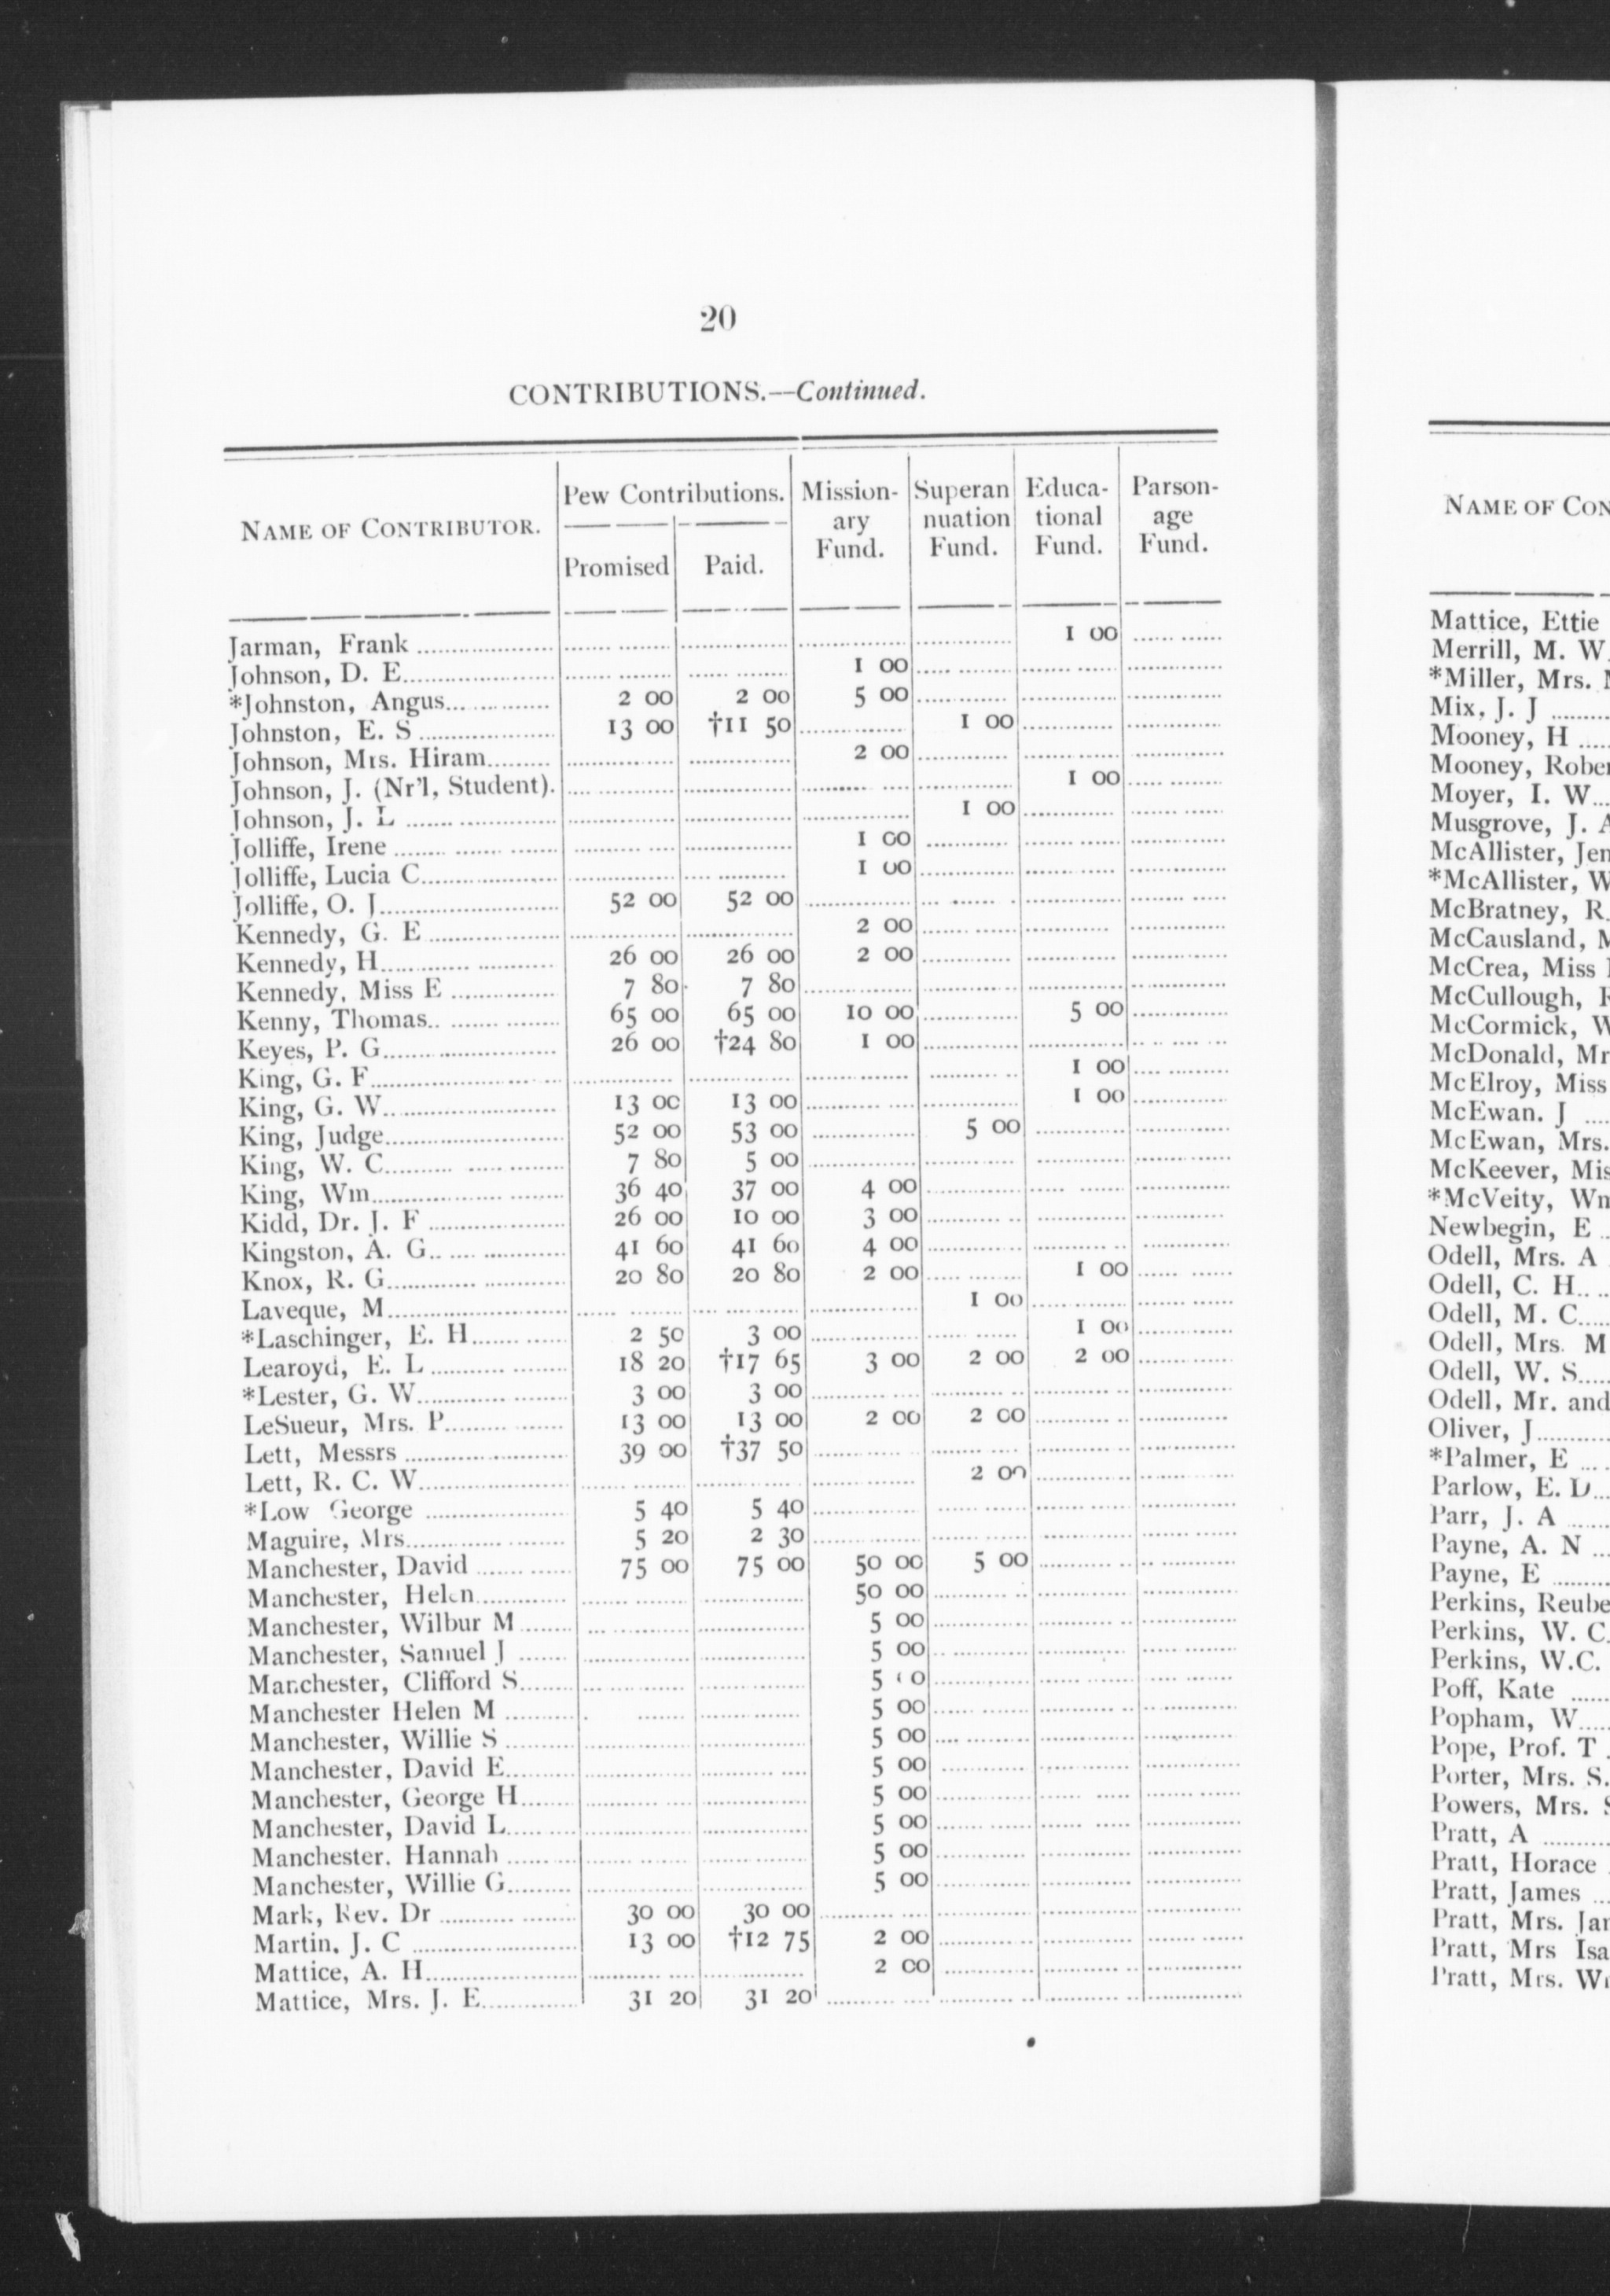 20
CONTRIBUTIONS.—Continued.
NAME OF CONTRIBUTOR. Pew Contributions. Promised Paid. Mission-ary Fund. Superannuation Fund. Educa-tional Fund. Parson-age Fund.
Jarman, Frank 1 00
Johnson, D. E. 1 00
*Johnston, Angus 2 00 2 00 5 00
Johnston, E. S 13 00 †11 50 1 00
Johnson, Mrs. Hiram 2 00
Johnson, J. (Nr'l, Student). 1 00
Johnson, J. L 1 00
Jolliffe, Irene 1 00
Jolliffe, Lucia C. 1 00
Jolliffe, O. J. 52 00 52 00
Kennedy, G. E 2 00
Kennedy, H. 26 00 26 00 2 00
Kennedy, Miss E 7 80 7 80
Kenny, Thomas 65 00 65 00 10 00 5 00
Keyes, P. G. 26 00 †24 80 1 00
King, G. F. 1 00
King, G. W. 13 00 13 00 1 00
King, Judge 52 00 53 00 5 00
King, W. C. 7 80 5 00
King, Wm. 36 40 37 00 4 00
Kidd, Dr. J. F 26 00 10 00 3 00
Kingston, A. G. 41 60 41 60 4 00
Knox, R. G. 20 80 20 80 2 00 1 00
Laveque, M. 1 00
*Laschinger, E. H. 2 50 3 00 1 00
Learoyd, E. L 18 20 †17 65 3 00 2 00 2 00
*Lester, G. W. 3 00 3 00
LeSueur, Mrs. P. 13 00 13 00 2 00 2 00
Lett, Messrs 39 00 †37 50
Lett, R. C. W. 2 00
*Low George 5 40 5 40
Maguire, Mrs. 5 20 2 30
Manchester, David 75 00 75 00 50 00 5 00
Manchester, Helen 50 00
Manchester, Wilbur M 5 00
Manchester, Samuel J 5 00
Manchester, Clifford S. 5 00
Manchester Helen M 5 00
Manchester, Willie S 5 00
Manchester, David E. 5 00
Manchester, George H. 5 00
Manchester, David L. 5 00
Manchester. Hannah 5 00
Manchester, Willie G. 5 00
Mark, Rev. Dr 30 00 30 00
Martin. J. C 13 00 †12 75 2 00
Mattice, A. H. 2 00
Mattice, Mrs. J. E. 31 20 31 20
NAME OF CON
Mattice, Ettie
Merrill, M. W.
*Miller, Mrs.
Mix, J. J
Mooney, H
Mooney, Rober
Moyer, I. W.
Musgrove, J. A
McAllister, Jen
*McAllister, W
McBratney, R.
McCausland, M
McCrea, Miss
McCullough,
McCormick, W
McDonald, Mr
McElroy, Miss
McEwan. J
McEwan, Mrs.
McKeever, Mis
*McVeity, Wm
Newbegin, E
Odell, Mrs. A
Odell, C. H.
Odell, M. C.
Odell, Mrs. M
Odell, W. S.
Odell, Mr. and
Oliver, J.
*Palmer, E
Parlow, E. D
Parr, J. A
Payne, A. N
Payne, E
Perkins, Reube
Perkins, W. C.
Perkins, W.C.
Poff, Kate
Popham, W.
Pope, Prof. T
Porter, Mrs. S.
Powers, Mrs. S
Pratt, A
Pratt, Horace
Pratt, James
Pratt, Mrs. Jan
Pratt, Mrs Isa
Pratt, Mrs. W